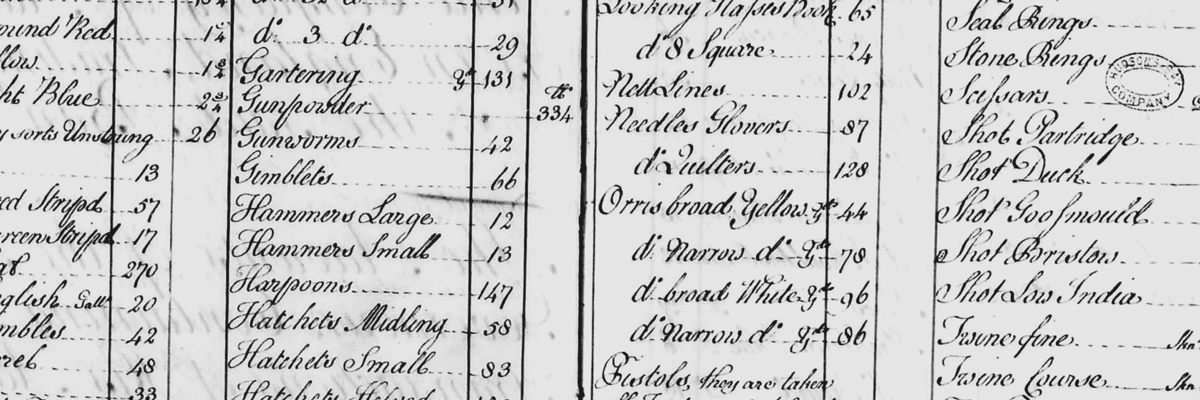 ound Red 1 3/4
llow 1 3/4
ht Blue 2 3/4
y sorts Unstrung 26
13
ed Strip'd 57
reen Strip'd 17
270
glish Gall 20
mbles 42
48
33
d° 3 d° 29
Gartering Yds 131
Gunpowder lb 334
Gunworms 42
Gimblets 66
Hammers Large 12
Hammers Small 13
Harpoons 147
Hatchets Midling 58
Hatchets Small 83
Hatchets Helved
Looking Glasses Book 65
d° 8 Square 24
Nett Lines 102
Needles Glovers 87
d° Quilters 128
Orris broad Yellow Yds 44
d° Narrow d° Yds 78
d° broad White Yds 96
d° Narrow d° Yds 86
Pistols, they are taken
Seal Rings
Stone Rings
Scissars
Shot Partridge
Shot Duck
Shot Goosmould
Shot Bristow
Shot Low India
Twine fine Skn
Twine Course Skn
HUDSON'S BAY COMPANY